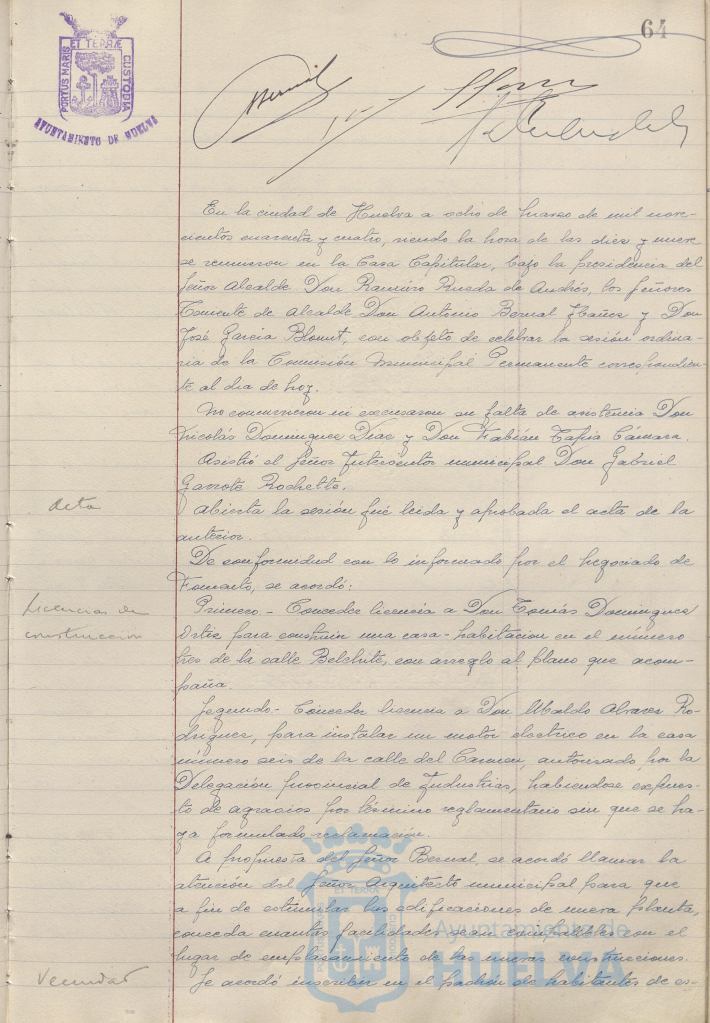 64
PORTUS MARIS ET TERRÆ CUSTODIA
AYUNTAMIENTO DE HUELVA
Bernal
En la ciudad de Huelva a ocho de marzo de mil nove-
cientos cuarenta y cuatro, siendo la hora de las diez y nueve
se reunieron en la Casa Capitular, bajo la presidencia del
Señor Alcalde Don Ramiro Rueda de Andrés, los Señores
Teniente de Alcalde Don Antonio Bernal Ibañez y Don
José García Blount, con objeto de celebrar la sesión ordina-
ria de la Comisión Municipal Permanente correspondien-
te al dia de hoy.
No concurrieron ni excusaron su falta de asistencia Don
Nicolás Dominguez Diaz y Don Fabián Tapia Cámara.
Asistió el Señor Interventor municipal Don Gabriel
Garrote Rochette.
Acta
Abierta la sesión fué leida y aprobada el acta de la
anterior.
De conformidad con lo informado por el Negociado de
Fomento, se acordó:
Licencias de
construccion
Primero.- Conceder licencia a Don Tomás Dominguez
Ortiz para construir una casa-habitacion en el número
tres de la calle Belchite, con arreglo al plano que acom-
paña.
Segundo- Conceder licencia a Don Ubaldo Alvarez Ro-
driguez, para instalar un motor electrico en la casa
número seis de la calle del Carmen, autorizado por la
Delegación provincial de Industrias, habiendose expues-
to de agravios por término reglamentario sin que se ha-
ya formulado reclamación.
A propuesta del Señor Bernal, se acordó llamar la
atención del Señor Arquitecto municipal para que
a fin de estimular las edificaciones de nueva planta,
conceda cuantas facilidades sean compatibles con el
lugar de emplazamiento de las nuevas construcciones.
Vecindad
Se acordó inscribir en el padrón de habitantes de es-
Ayuntamiento de
HUELVA